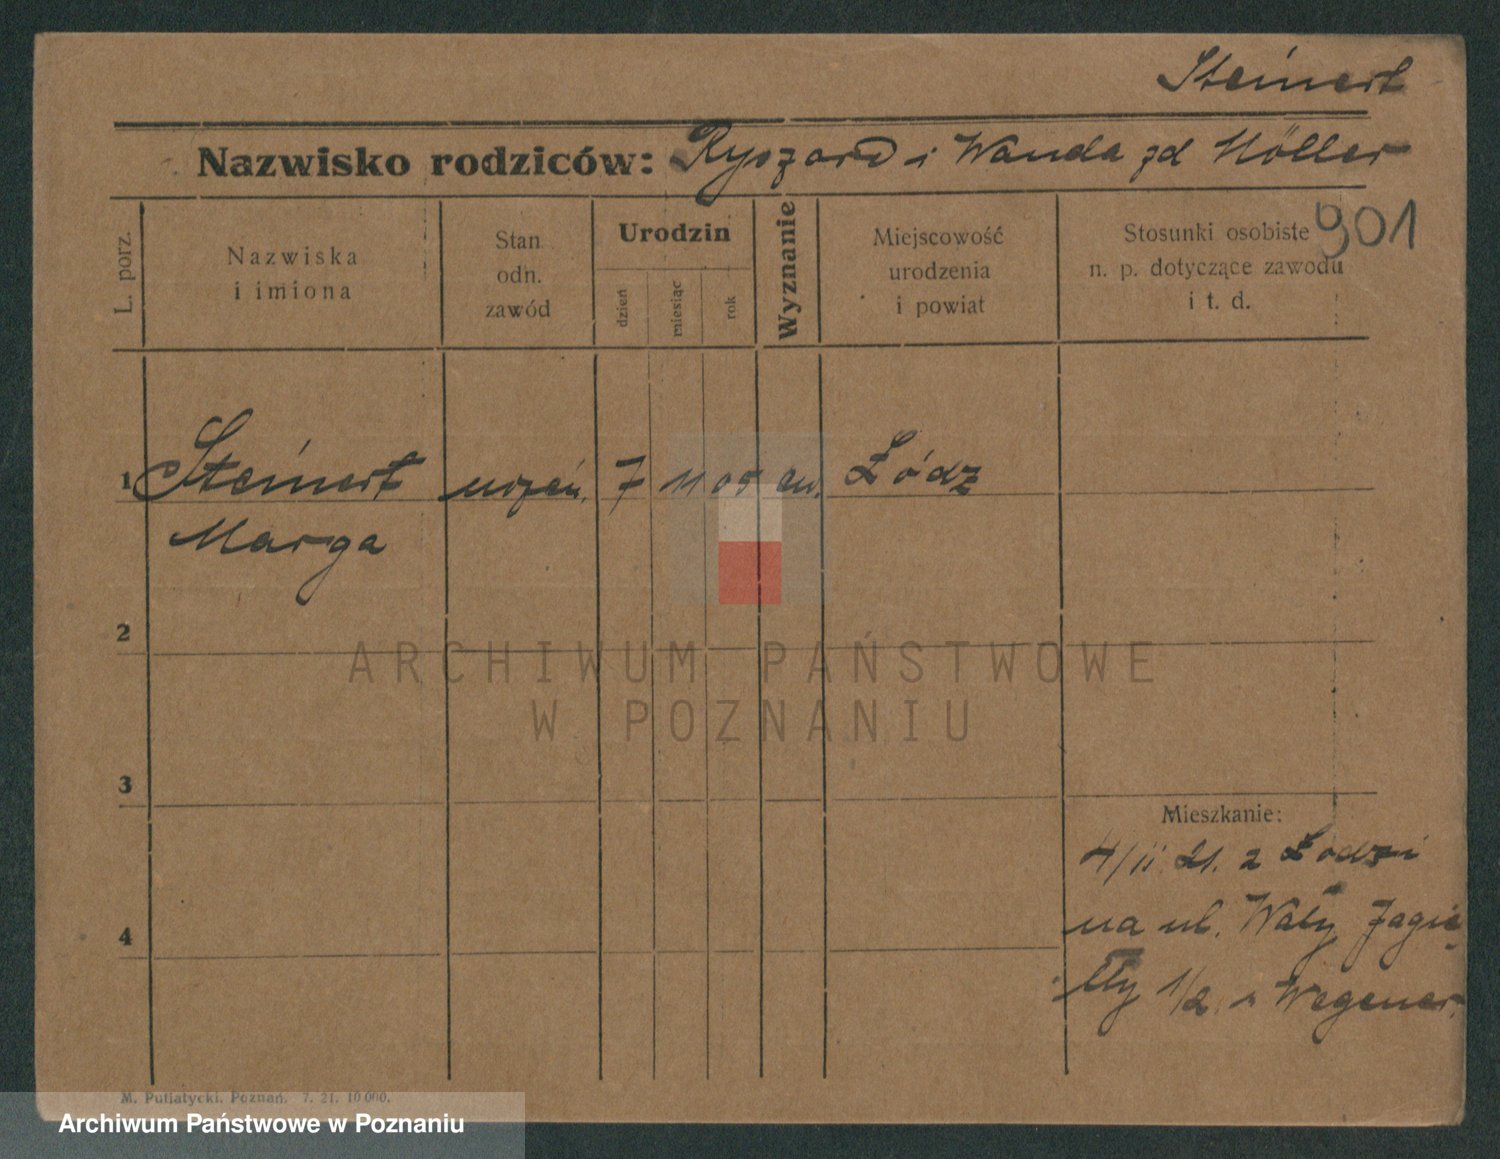 Steinert
Nazwisko rodziców: Ryszard i Wanda zd Möller
901
L. porz.
Nazwiska
i imiona
Stan
odn.
zawód
Urodzin
dzień
miesiąc
rok
Wyznanie
Miejscowość
urodzenia
i powiat
Stosunki osobiste
n. p. dotyczące zawodu
i t. d.
1 Steinert uczeń. 7 11 05 ew. Łódz
Marga
2
ARCHIWUM PAŃSTWOWE
W POZNANIU
3
Mieszkanie:
4/11 21. z Łodzi
na ul. Wały Jagie
4
łły 1/2 Wegener.
M. Putiatycki. Poznań. 7. 21. 10 000.
Archiwum Państwowe w Poznaniu